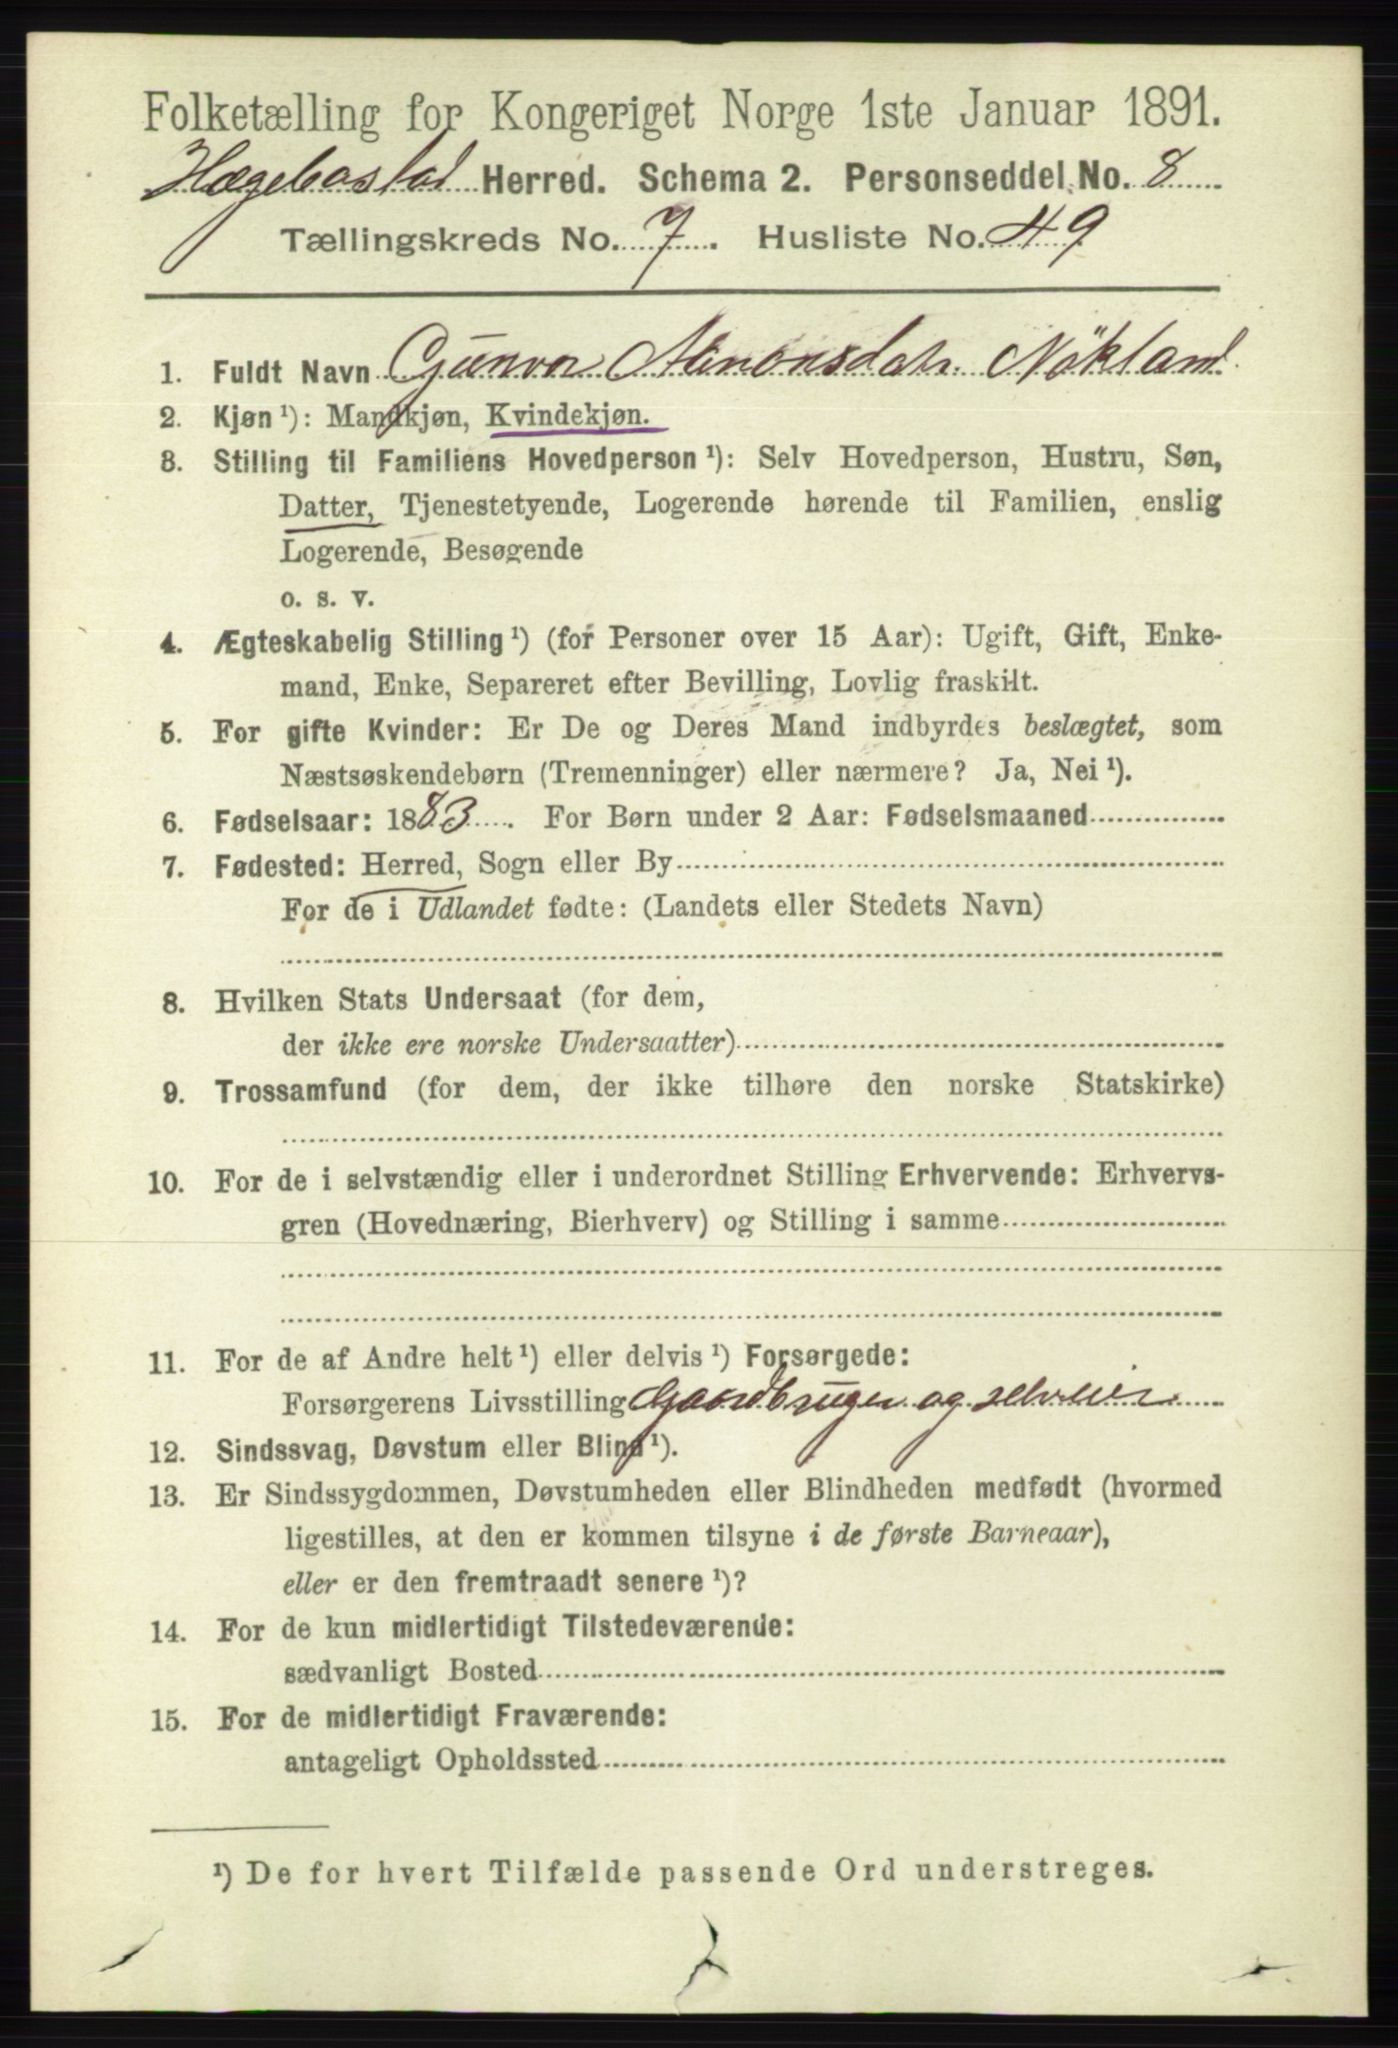 Folketælling for Kongeriget Norge 1ste Januar 1891.
Hægebostad Herred. Schema 2. Personseddel No. 8
Tællingskreds No. 7. Husliste No. 49
1. Fuldt Navn Gunvor Aanonsdatr. Nökland
2. Kjøn ¹): Mandkjøn, Kvindekjøn.
3. Stilling til Familiens Hovedperson ¹): Selv Hovedperson, Hustru, Søn,
Datter, Tjenestetyende, Logerende hørende til Familien, enslig
Logerende, Besøgende
o. s. v.
4. Ægteskabelig Stilling ¹) (for Personer over 15 Aar): Ugift, Gift, Enke-
mand, Enke, Separeret efter Bevilling, Lovlig fraskilt.
5. For gifte Kvinder: Er De og Deres Mand indbyrdes beslægtet, som
Næstsøskendebørn (Tremenninger) eller nærmere? Ja, Nei ¹).
6. Fødselsaar: 1883. For Børn under 2 Aar: Fødselsmaaned
7. Fødested: Herred, Sogn eller By
For de i Udlandet fødte: (Landets eller Stedets Navn)
8. Hvilken Stats Undersaat (for dem,
der ikke ere norske Undersaatter)
9. Trossamfund (for dem, der ikke tilhøre den norske Statskirke)
10. For de i selvstændig eller i underordnet Stilling Erhvervende: Erhvervs-
gren (Hovednæring, Bierhverv) og Stilling i samme
11. For de af Andre helt ¹) eller delvis ¹) Forsørgede:
Forsørgerens Livsstilling Gaardbruger og selveier
12. Sindssvag, Døvstum eller Blind ¹).
13. Er Sindssygdommen, Døvstumheden eller Blindheden medfødt (hvormed
ligestilles, at den er kommen tilsyne i de første Barneaar),
eller er den fremtraadt senere ¹)?
14. For de kun midlertidigt Tilstedeværende:
sædvanligt Bosted
15. For de midlertidigt Fraværende:
antageligt Opholdssted
¹) De for hvert Tilfælde passende Ord understreges.